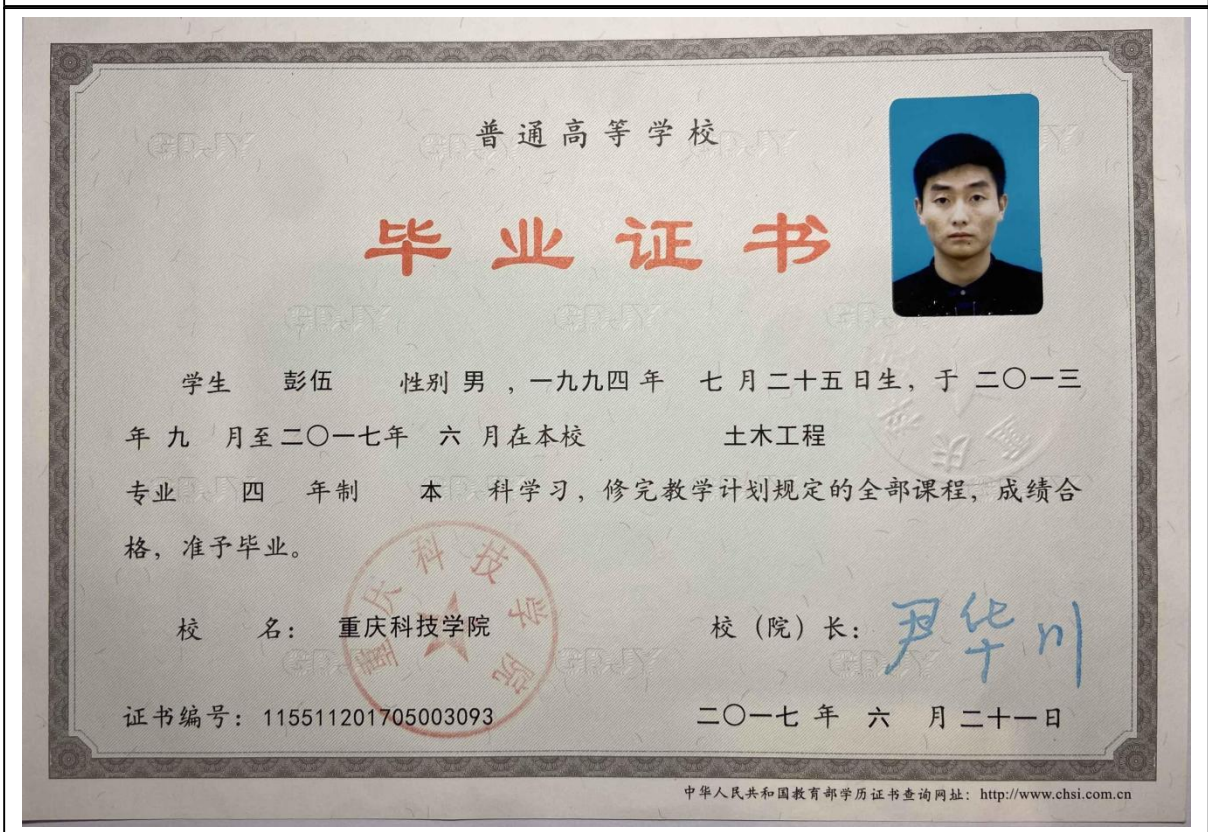 普通高等学校
毕业证书
学生 彭伍 性别 男 ，一九九四 年 七 月 二十五 日生，于 二〇一三
年 九 月至 二〇一七年 六 月在本校 土木工程
专业 四 年制 本 科学习，修完教学计划规定的全部课程，成绩合
格，准予毕业。
重庆科技学院
校 名： 重庆科技学院 校（院）长： 尹华川
证书编号：115511201705003093 二〇一七 年 六 月 二十一 日
中华人民共和国教育部学历证书查询网址：http://www.chsi.com.cn